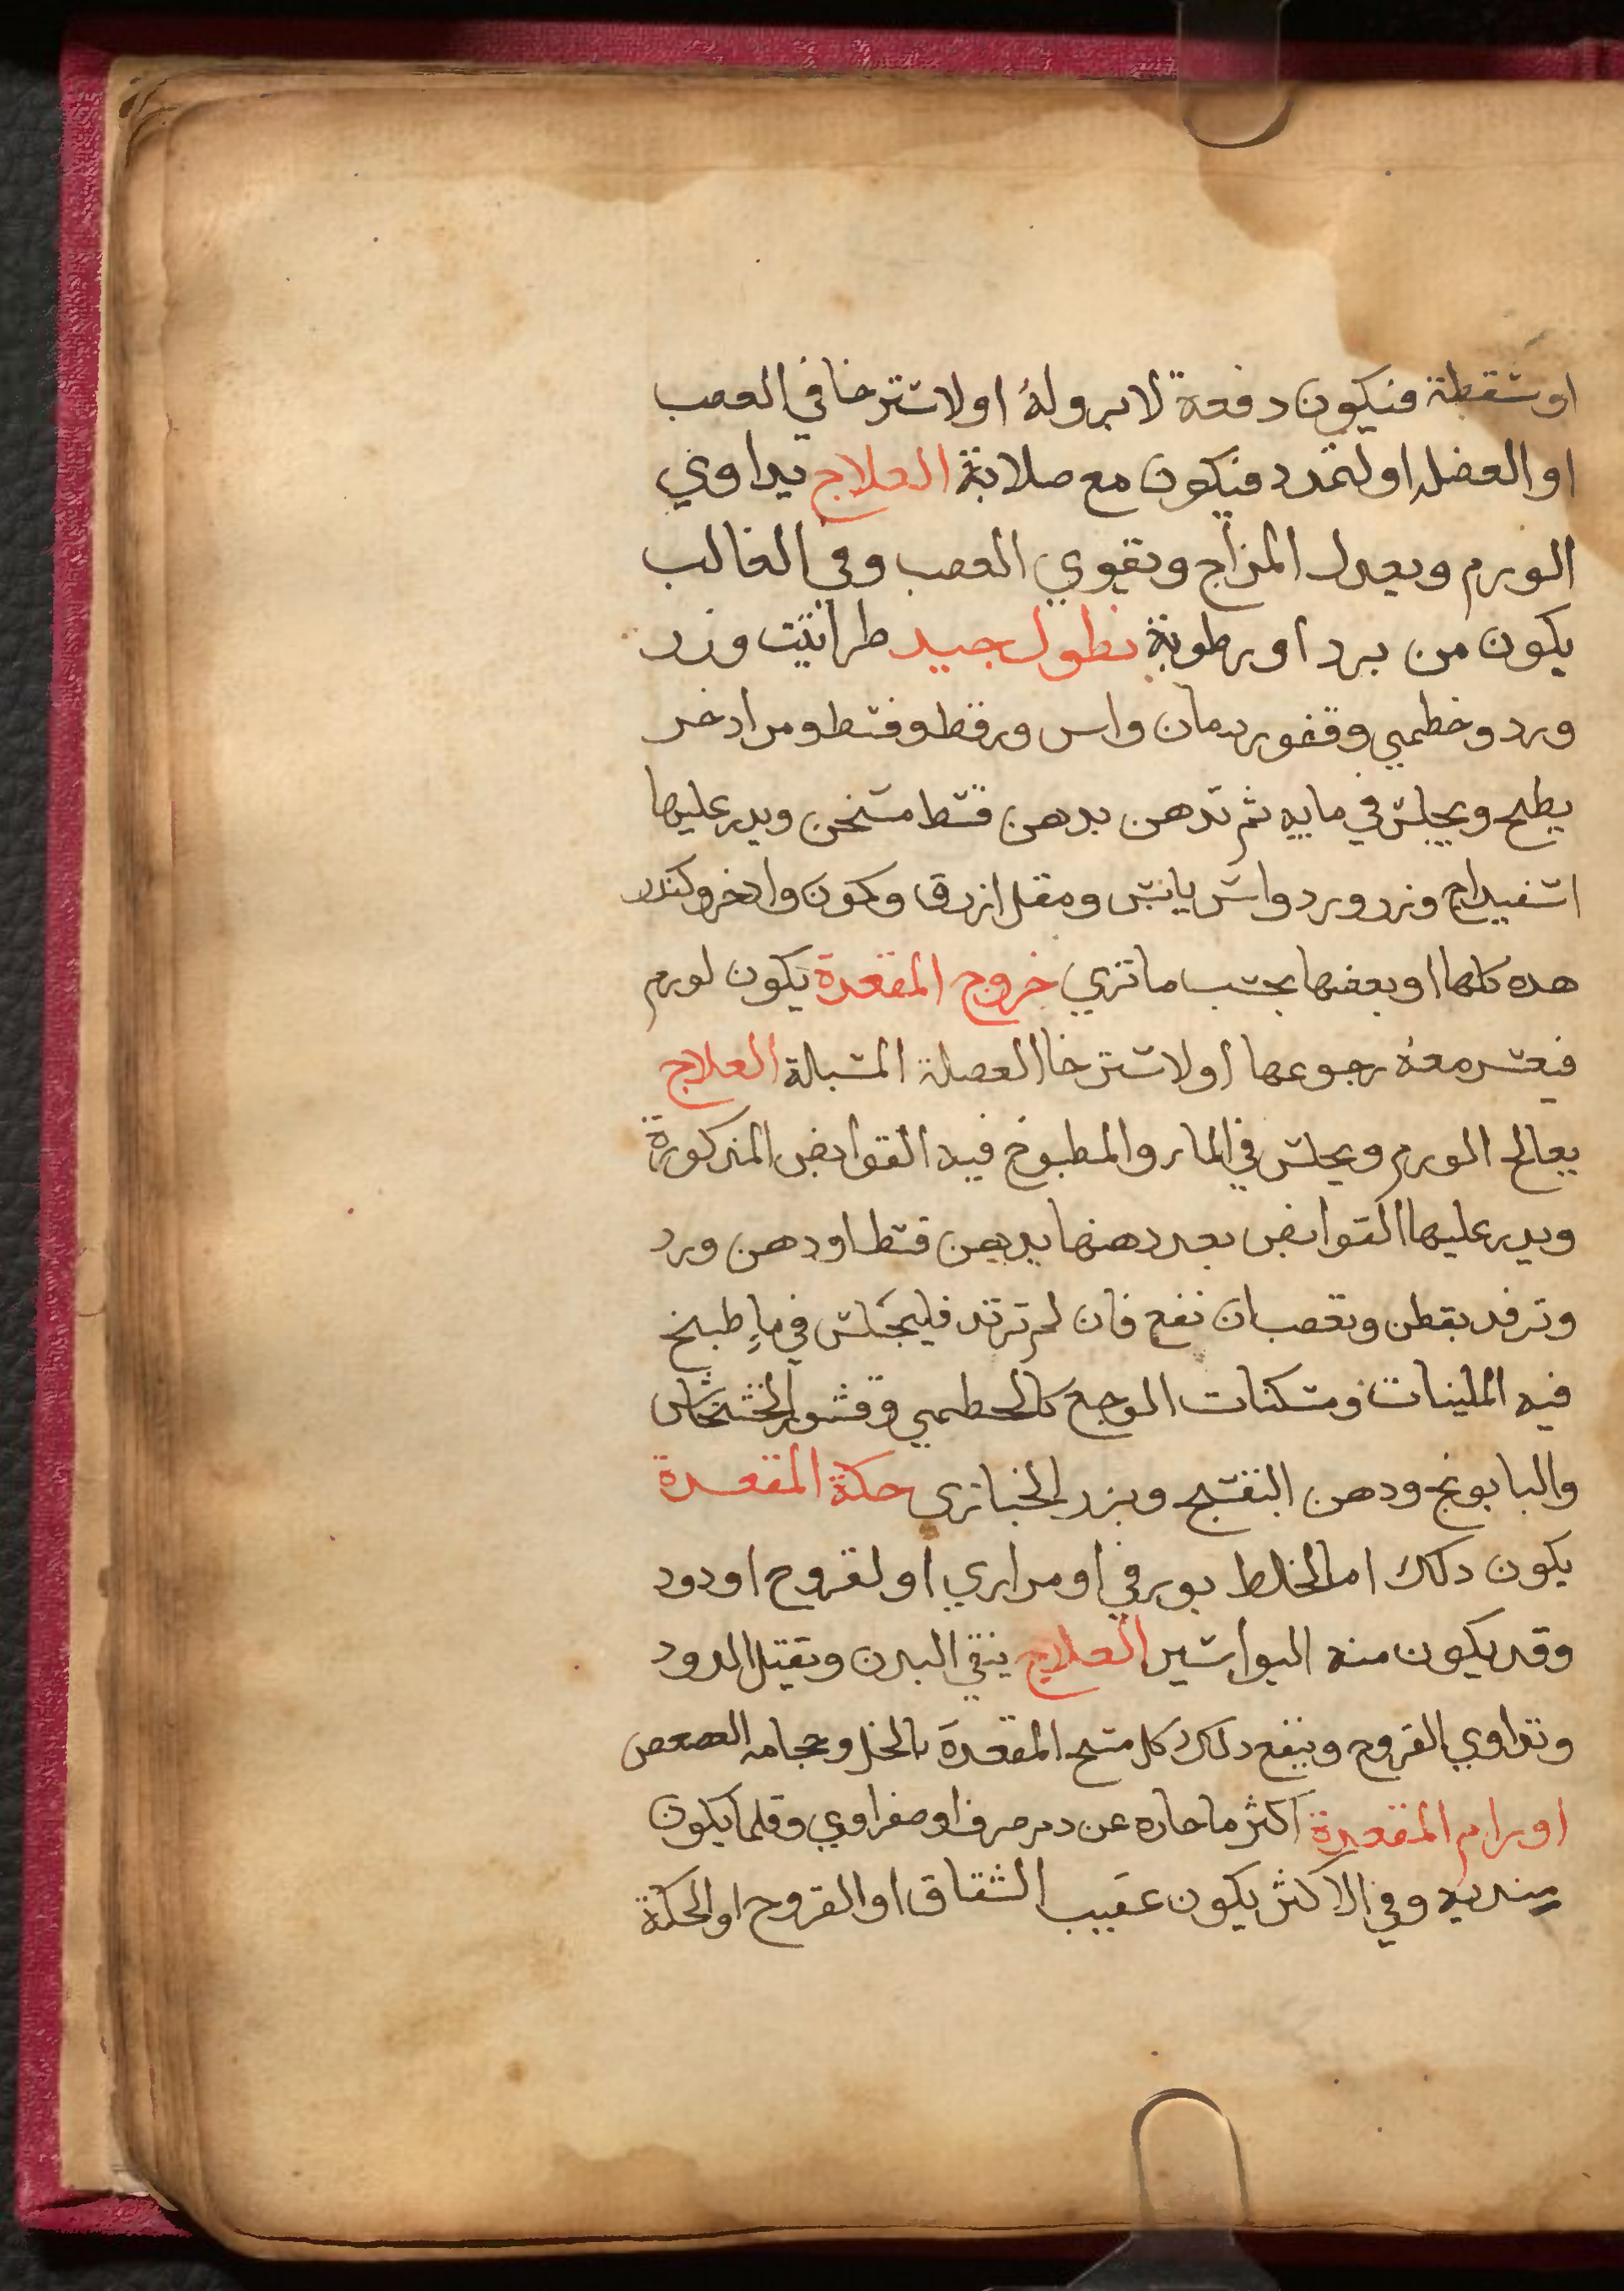 او شقطة فنيكون دفعة لا برو له او لاسترخا في العصب
او العضل او لتمدد فيكون مع صلابة العلاج يداوي
الورم ويعدل المزاج ويقوي العصب وفي الغالب
يكون من برد او رطوبة نطول جيد طراثيث وزر
ورد وخطمي وقشور رمان واس وقرظ وقسط ومر اذخر
يطبخ ويجلس في مايه ثم تدهن بدهن قسط مسخن ويدر عليها
اسفيداج وزر ورد واس يابس ومقل ازرق وكمون واذخر وكندر
هده كلها او بعضها بحسب ما تري خروج المقعدة يكون لورم
فيعسر معه رجوعها او لاسترخا العضلة المشبالة العلاج
يعالج الورم ويجلس في الماء والمطبوخ فيه القوابض المذكورة
ويدر عليها القوابض بعد دهنها بدهن قسط او دهن ورد
وترفد بقطن وتعصب ان نفع فان لم ترتد فليجلس في ماء طبيخ
فيه الملينات ومسكنات الوجع كالخطمي وقشور الخشخاش
والبابونج ودهن البنفسج وبزر الخبازى حكة المقعدة
يكون دلك اما لخلط بورقي او مراري او لقروح او دود
وقد يكون منه البواسير العلاج ينقي البدن ويقتل الدود
وتداوي القروح وينفع دلك كل مسح المقعدة بالخل وحجامه العصعص
اورام المقعدة اكثرها حاره عن دم صرف او صفراوي وقلما يكون
مبتديه وفي الاكثر يكون عقيب الشقاق او القروح او الحكة